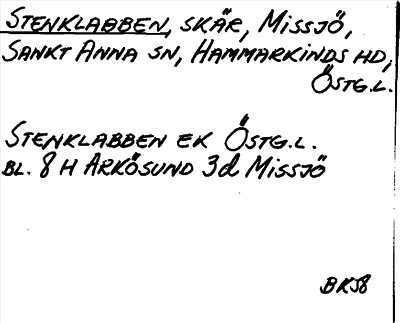 STENKLABBEN, SKÄR, MISSJÖ,
SANKT ANNA SN, HAMMARKINDS HD,
ÖSTG.L.
STENKLABBEN EK ÖSTG.L.
BL. 8 H ARKÖSUND 3d MISSJÖ
BKJ8